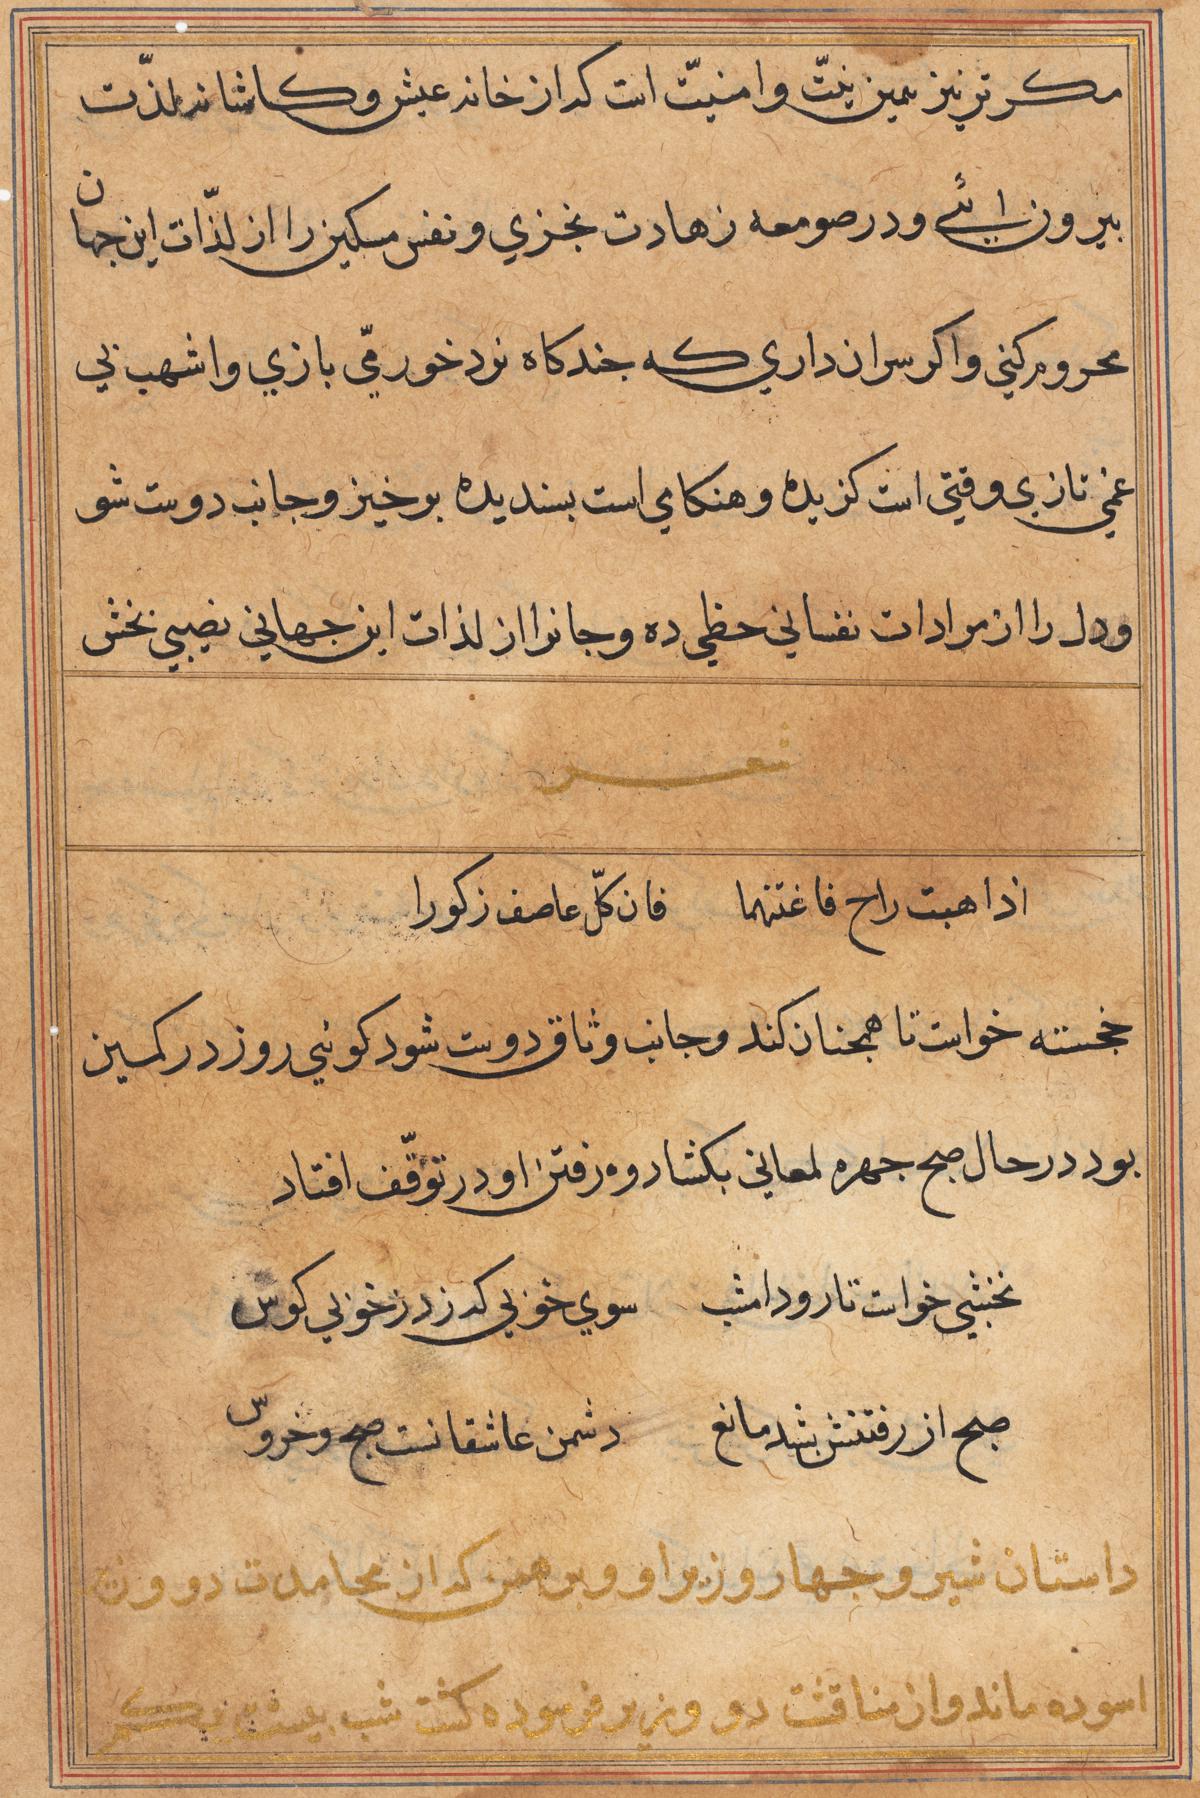 مکر ترنیز همین نیّت و امنیّت است که از خانه عیش و کاشانه لذّت
بیرون ائے و در صومعه زهادت بخزي و نفس مسکین را از لذّات این جهان
محروم کني و اکر سر ان داري که جند کاه نرد خورمّي بازي و اشهب بي
غمي تازي وقتي است کزیده و هنکامي است بسندیده بر خیز و جانب دوست شو
و دل را از مرادات نفساني حظي ده و جانرا از لذات این جهاني نصیبي بخش
شعر
اذا هبت راح فاغتنما فان کلّ عاصف زکورا
خجسته خواست تا همجنان کند و جانب وثاق دوست شود کوئي روز در کمین
بود در حال صبح جهره لمعاني بکشاد و ه رفتن او در توقّف افتاد
نخشبي خواست تا رود امشب سوي خوبي که زد ز خوبي کوس
صبح از رفتنش بشد مانع دشمن عاشقانست صبح و خروس
داستان شیر و جهار وزیر او و برهمن که از محامدت دو وزیر
اسوده ماند و از مناقشت دو وزیر فرسوده کشت شب بیست و یکم